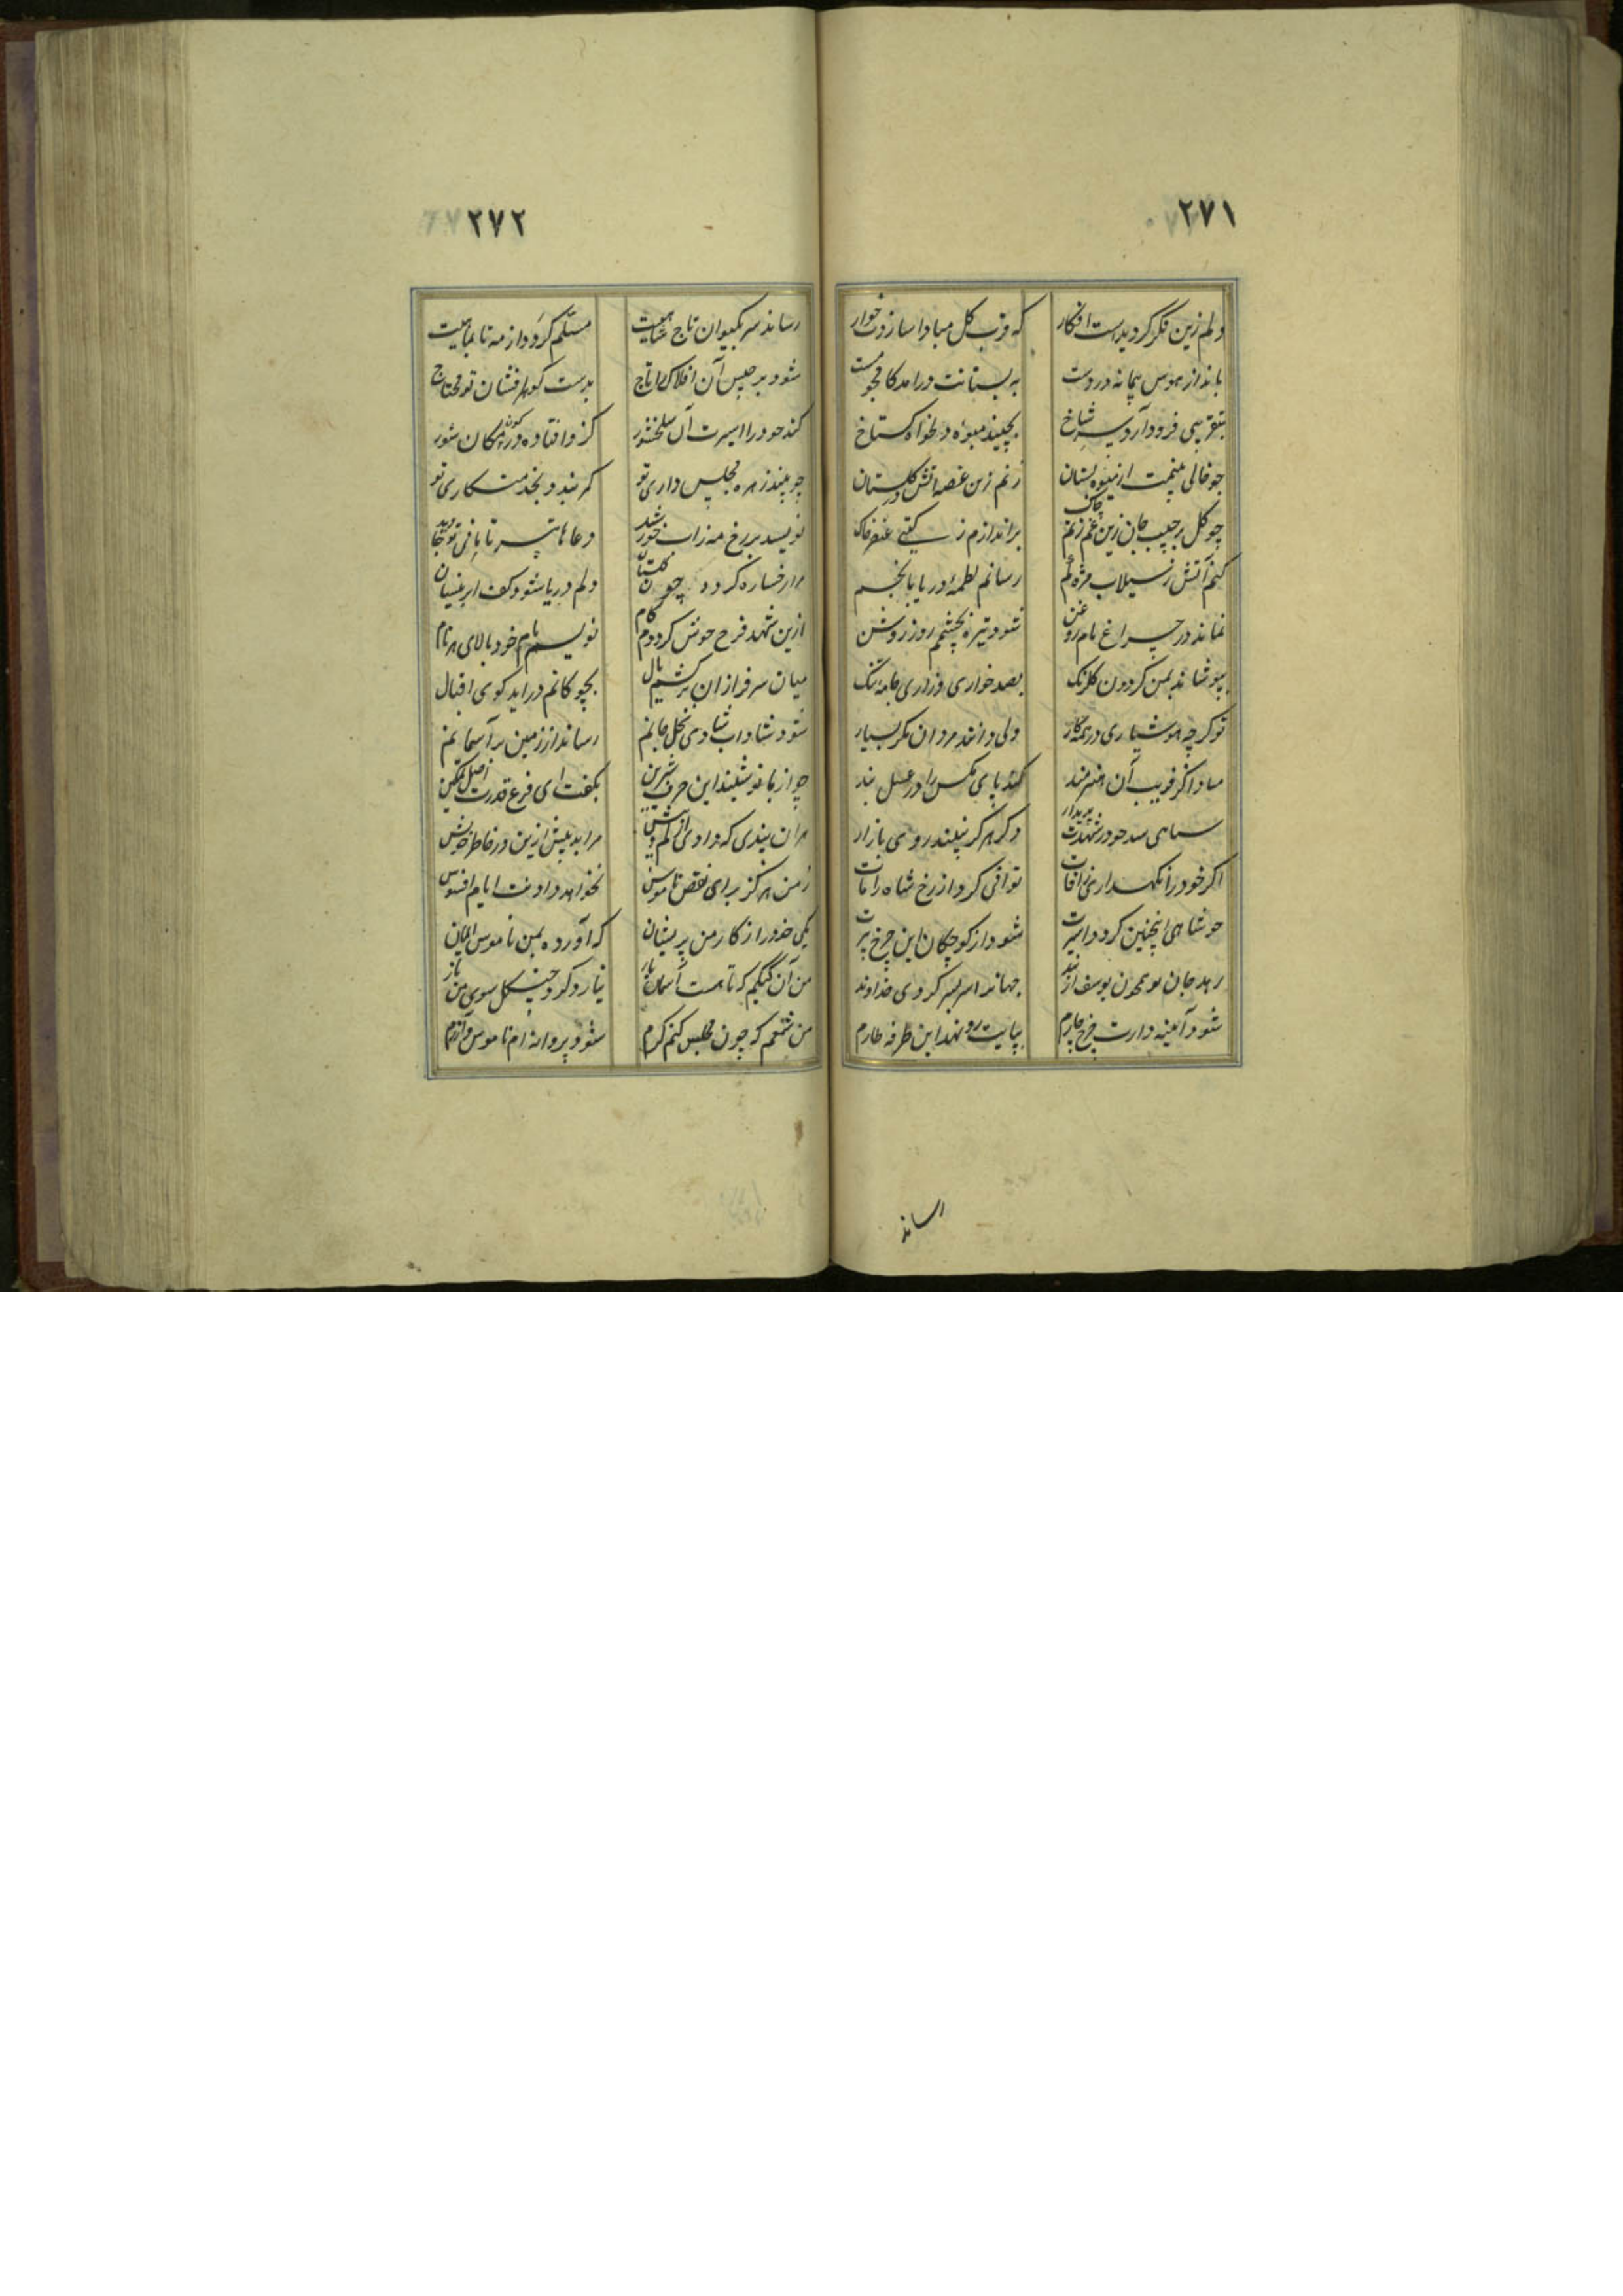 ۲۷۱
دلم زین فکر کردیدست افکار
که قرب کل مبادا سازدت خوار
بانداز هوس پیمانه در دست
به بستانت درامد کامجو مست
بتقریبی فرود آرد سر شاخ
بچیند میوۀ دلخواه کستاخ
چو خالی بینمت از میوه بستان
زنم زین غصه اتش در کلستان
چو کل بر جیب جان زین غم زنم چاک
براندازم ز کیتی عنصر خاک
کنم آتش ز سیلاب مژه نم
رسانم لطمۀ دریا با نجم
نماند در چراغ نام روغن
شود تیره بچشمم روز روشن
بپوشاند بمن کردون کلرنک
بصد خواری و زاری جامه تنک
تو کرچه هوشیاری در همه کار
ولی دانند مردان مکر بسیار
مبادا کز فریب آن هنرمند
کند پای مکس را در عسل بند
سیاهی در شهدت پدیدار
دکر هرکز نبیند روی بازار
اکر خود را نکهداری ز آفات
توانی کرد از رخ شاه را مات
چو شاهی اینچنین کردد اسیرت
شود از کوچکان این چرخ پیرت
رهد جان چون یوسف از بند
جهانرا سر بسر کردی خداوند
شود آئینه دارت چرخ چارم
بپایت رو نهد این طرفه طارم
رساند
۲۷۲
رساند سر بکیوان تاج شاهیت
مسلم کردد از مه تا بماهیت
شود برجیس آن افلاک را تاج
بدست کوهر افشان تو محتاج
کند خود را اسیرت آن سلحشور
کزو افتاده در کون و مکان شور
چو بیند زهره مجلس داری تو
کمر بندد بخدمتکاری تو
نویسد بر رخ مه زاب خورشید
دعاها تیر تا باشی تو جاوید
مرا رخساره کردد چون کلستان
دلم دریا شود کف ابر نیسان
ازین شهد فرح خوش کرددم کام
نویسم نام خود بالای هر نام
میان سرفرازان برکشم یال
بچوکانم دراید کوی اقبال
شود شاداب شادی نخل جانم
رساند از زمین بر آسمانم
چو از بانو شنید این حرف شیرین
بکفت ای فرع قدرت اصل تمکین
هر آن پندی که دادی از کم و بیش
مرا بد بیش ازین در خاطر خویش
ز من هرکز برای نقص ناموس
نخواهد داد دست ایام افسوس
مکن خود را ز کار من پریشان
که آورده بمن ناموس ایمان
من آن کبکم که تا هست آسمان باز
نیارد کرد چنکل سوی من باز
من شمعم که چون مجلس کنم کرم
شود پروانه ام ناموس و آزرم